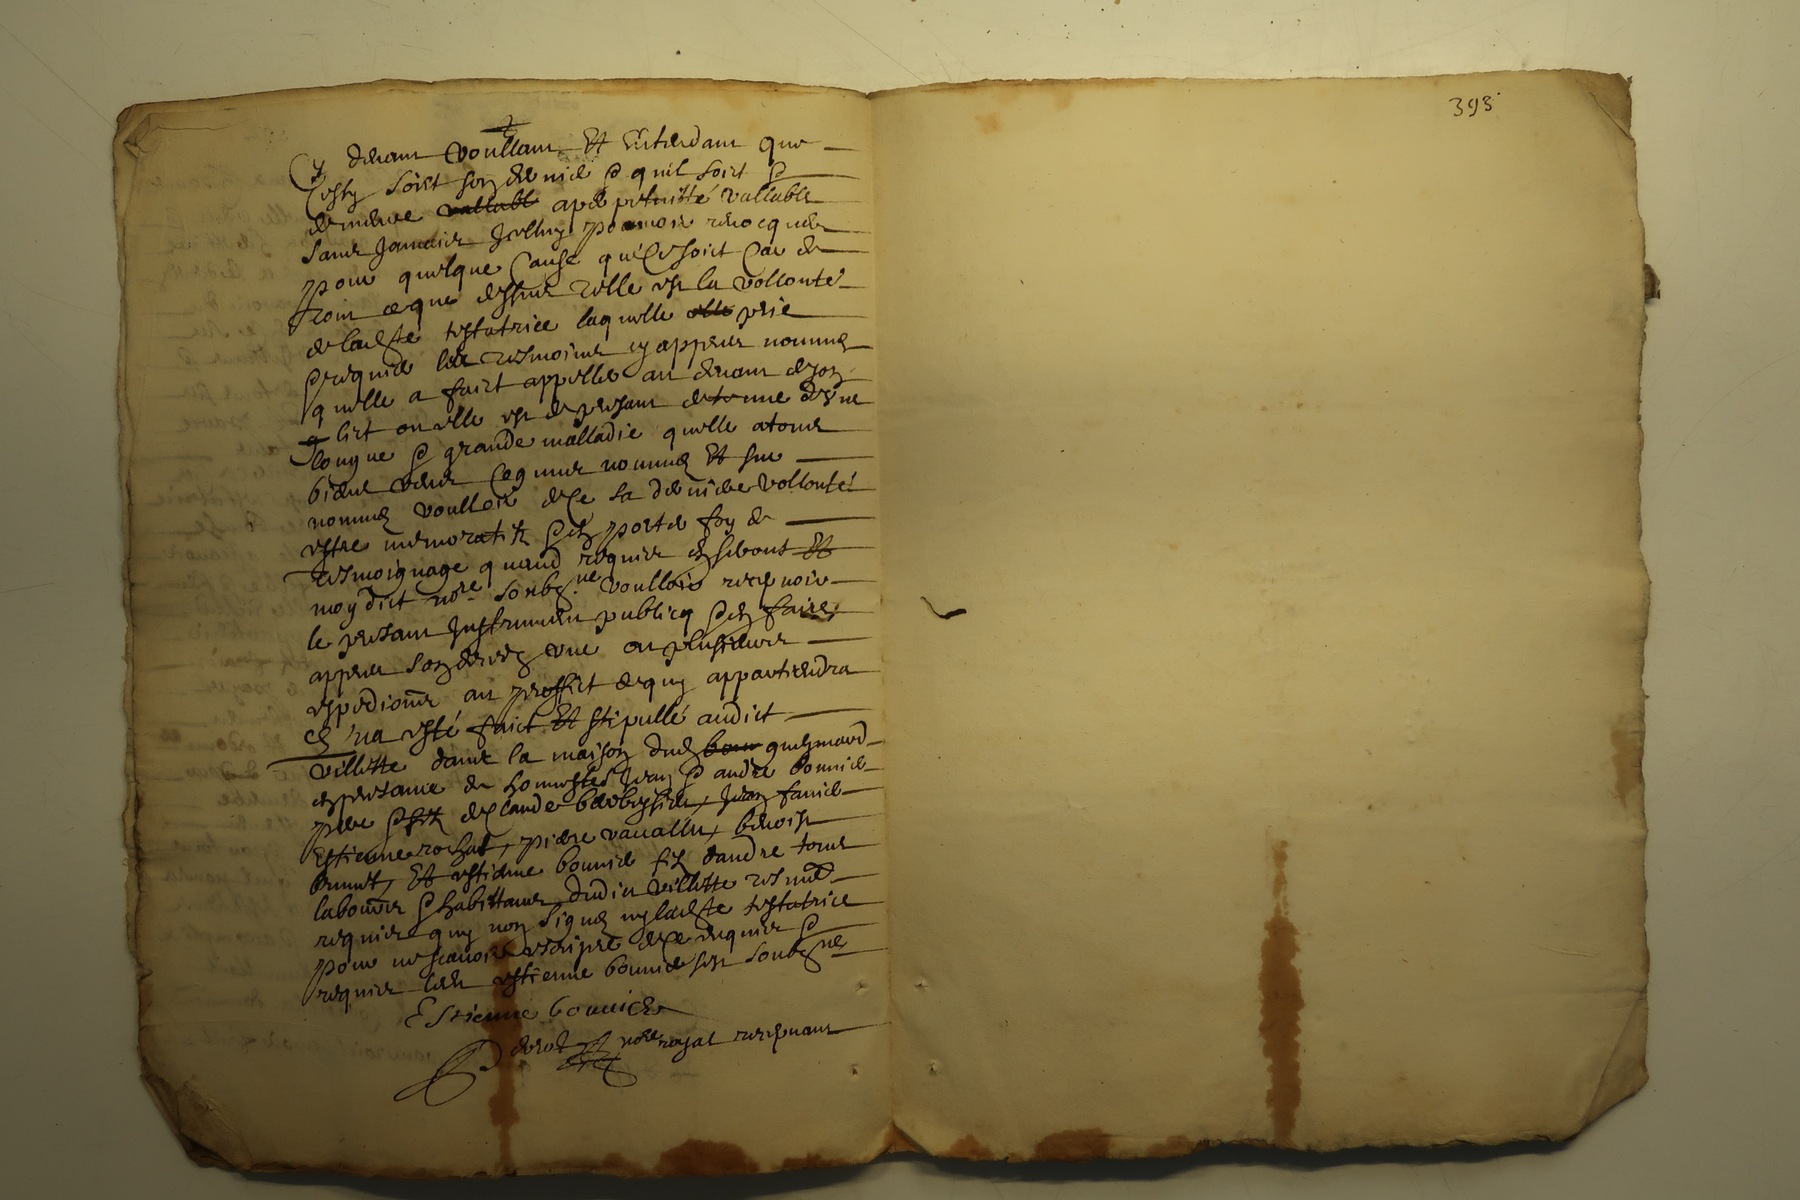 393
Cy devant voullant Et Entendant que
cesty soict son dernier & quil soict &
demeure vallable a perpetuitté vallable
sans Jamais Jcelluy pouvoir revocquer
pour quelque Cause que Ce soict Car
tout ce que dessus telle est la vollonté
de ladste testatrice laquelle elle prie
& requier les tesmoings cy appres nommez
quelle a faict appeller au devant de son
lict ou elle est de presant detenue d'une
longue & grande malladie quelle a tous
bien Cogneus nommez Et sur
nommez voulloir de Ce sa derniere vollonté
estre memoratifz & en porter foy de
tesmoignage quand requier en seront Et
moy dict nore soubz.ne voulloir recepvoir
le presant Jnstrument publicq & en faire
appres son deces une ou plusieurs
expedions au proffict de quy appartiendra
ce que a esté faict Et stipullé audict
villette dans la maison dud bou guymard
en presance de honnestes Jean & andre bonnier
pere & filz de Claude Jean fanier
Estienne rochat, piere vauallin, benoist
brunet, Et estienne bonnier filz dandre tous
laboure & habittans dudict villette tesm
requier quy non signez ny ladste testatrice
pour ne scavoir escripre de Ce requier &
requier led estienne bonnier sest soubzne
Estienne bonnier
nore royal recepvant